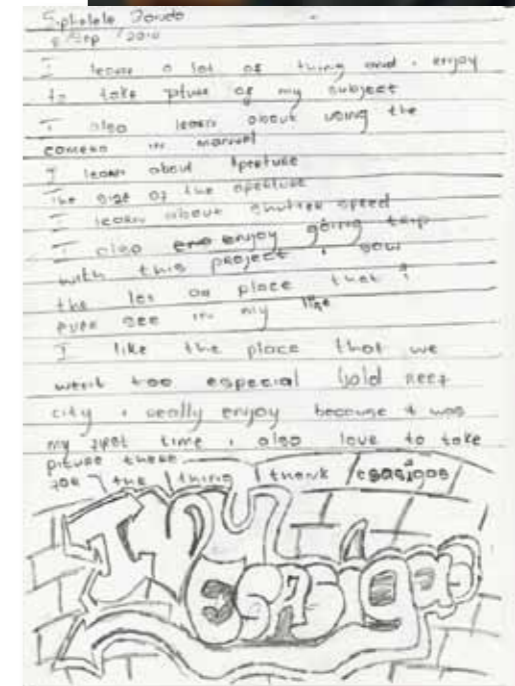 Siphelele
Sep 2010
I learn a lot of thing and i enjoy
to take pture of my subject
I also learn about using the
camera in manuel
I learn about Aperture
the size of the aperture
I learn about shutter speed
I also enjoy going trip
with this project i saw
the lot on place that I
ever see in my life
I like the place that we
went too especial Gold Reef
city i really enjoy because it was
my first time i also love to take
piture there
for the thing I thank